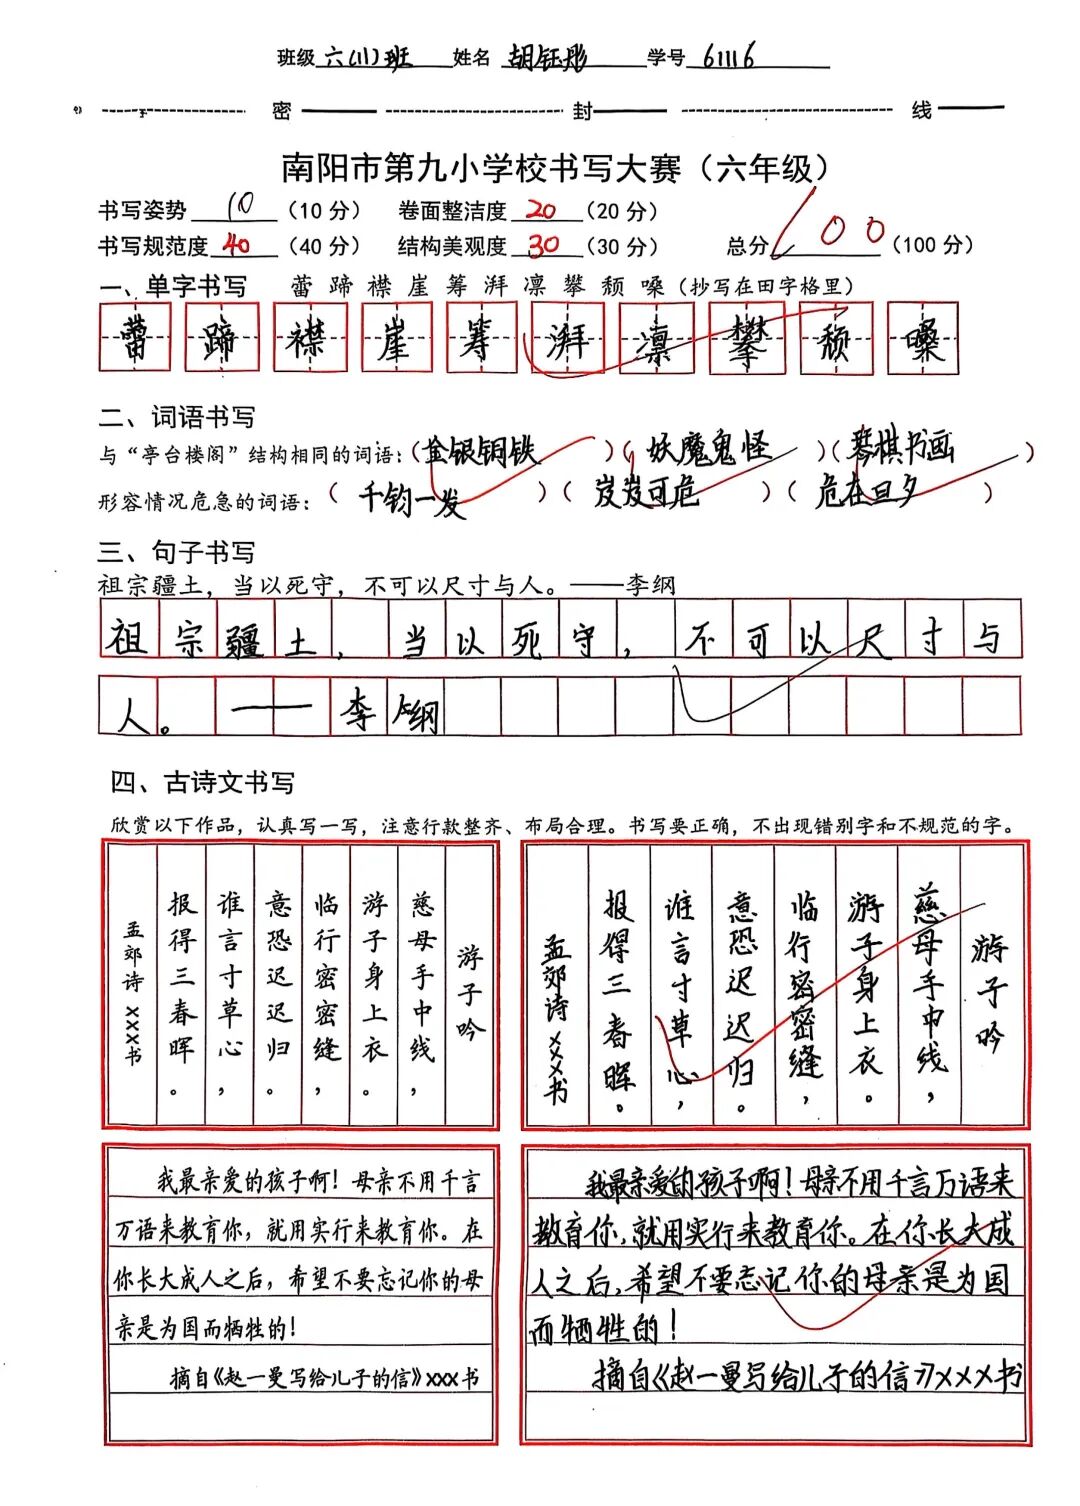 班级 六(11)班 姓名 胡钰彤 学号 61116
密 封 线
南阳市第九小学校书写大赛（六年级）
书写姿势 10 （10分） 卷面整洁度 20 （20分）
书写规范度 40 （40分） 结构美观度 30 （30分） 总分 100 （100分）
一、单字书写 蕾蹄襟崖筹湃凛攀颓嗓（抄写在田字格里）
蕾 蹄 襟 崖 筹 湃 凛 攀 颓 嗓
二、词语书写
与“亭台楼阁”结构相同的词语：（金银铜铁）（妖魔鬼怪）（琴棋书画）
形容情况危急的词语：（千钧一发）（岌岌可危）（危在旦夕）
三、句子书写
祖宗疆土，当以死守，不可以尺寸与人。——李纲
祖宗疆土，当以死守，不可以尺寸与
人。——李纲
四、古诗文书写
欣赏以下作品，认真写一写，注意行款整齐、布局合理。书写要正确，不出现错别字和不规范的字。
游子吟
慈母手中线，
游子身上衣。
临行密密缝，
意恐迟迟归。
谁言寸草心，
报得三春晖。
孟郊诗 XXX书
游子吟
慈母手中线，
游子身上衣。
临行密密缝，
意恐迟迟归。
谁言寸草心，
报得三春晖。
孟郊诗XXX书
我最亲爱的孩子啊！母亲不用千言
万语来教育你，就用实行来教育你。在
你长大成人之后，希望不要忘记你的母
亲是为国而牺牲的！
摘自《赵一曼写给儿子的信》XXX书
我最亲爱的孩子啊！母亲不用千言万语来
教育你，就用实行来教育你。在你长大成
人之后，希望不要忘记你的母亲是为国
而牺牲的！
摘自《赵一曼写给儿子的信》XXX书